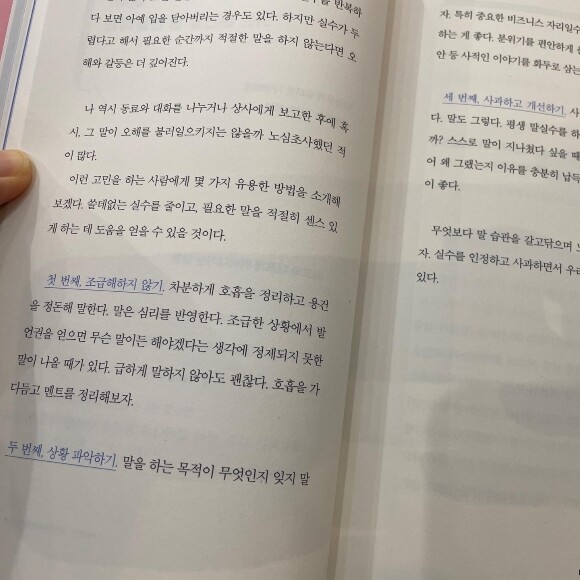 반복하
다 보면 아예 입을 닫아버리는 경우도 있다. 하지만 실수가 두
렵다고 해서 필요한 순간까지 적절한 말을 하지 않는다면 오
해와 갈등은 더 깊어진다.
나 역시 동료와 대화를 나누거나 상사에게 보고한 후에 혹
시, 그 말이 오해를 불러일으키지는 않을까 노심초사했던 적
이 많다.
이런 고민을 하는 사람에게 몇 가지 유용한 방법을 소개해
보겠다. 쓸데없는 실수를 줄이고, 필요한 말을 적절히 센스 있
게 하는 데 도움을 얻을 수 있을 것이다.
첫 번째, 조급해하지 않기. 차분하게 호흡을 정리하고 용건
을 정돈해 말한다. 말은 심리를 반영한다. 조급한 상황에서 발
언권을 얻으면 무슨 말이든 해야겠다는 생각에 정제되지 못한
말이 나올 때가 있다. 급하게 말하지 않아도 괜찮다. 호흡을 가
다듬고 멘트를 정리해보자.
두 번째, 상황 파악하기. 말을 하는 목적이 무엇인지 잊지 말
자. 특히 중요한 비즈니스 자리일수
하는 게 좋다. 분위기를 편안하게
안 등 사적인 이야기를 화두로 삼는
세 번째, 사과하고 개선하기. 사
다. 말도 그렇다. 평생 말실수를 하
까? 스스로 말이 지나쳤다 싶을 때
어 왜 그랬는지 이유를 충분히 납득
이 좋다.
무엇보다 말 습관을 갈고닦으며
자. 실수를 인정하고 사과하면서 우리
있다.